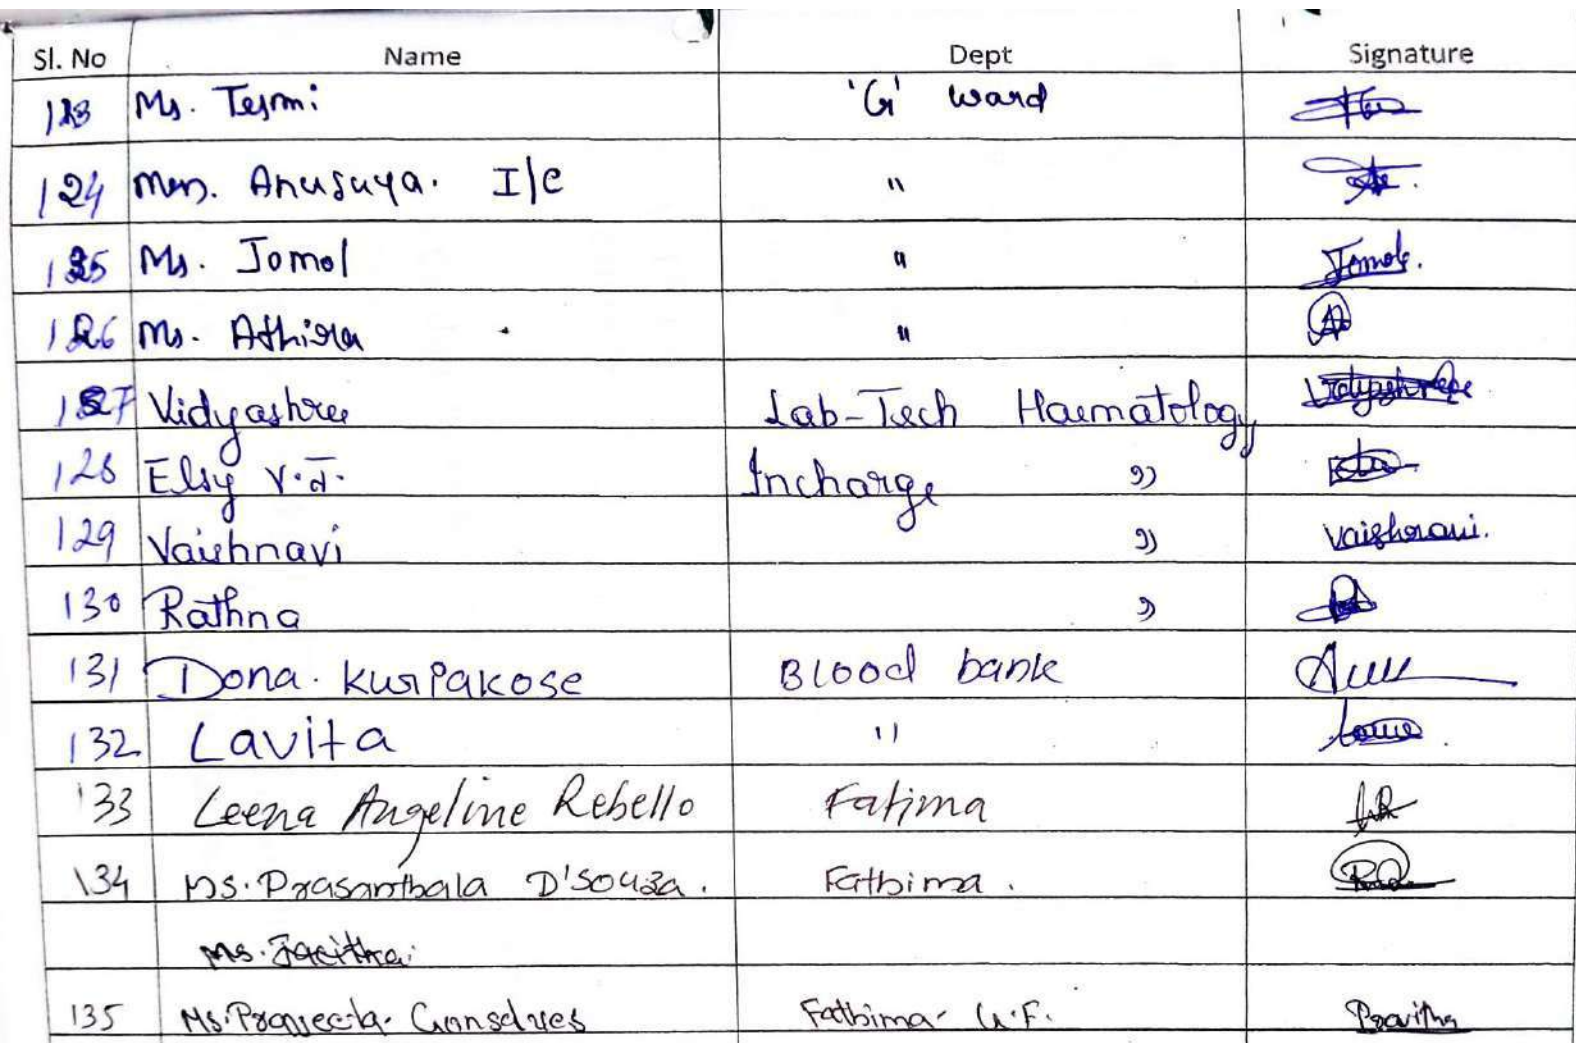 Sl. No Name Dept Signature
123 Ms. Tejmi 'G' ward
124 Mrs. Anusuya. I/C "
125 Ms. Jomol " Jomol.
126 Ms. Athira "
127 Vidyashree Lab-Tech Haematology Vidyashree
128 Elsy V.J. Incharge "
129 Vaishnavi " Vaishnavi.
130 Rathna "
131 Dona. Kuriakose Blood bank
132 Lavita "
133 Leena Angeline Rebello Fatima
134 Ms. Prasanthbala D'Souza. Fathima.
Ms. Jacitha
135 Ms. Fathima- G.F. Pravitha